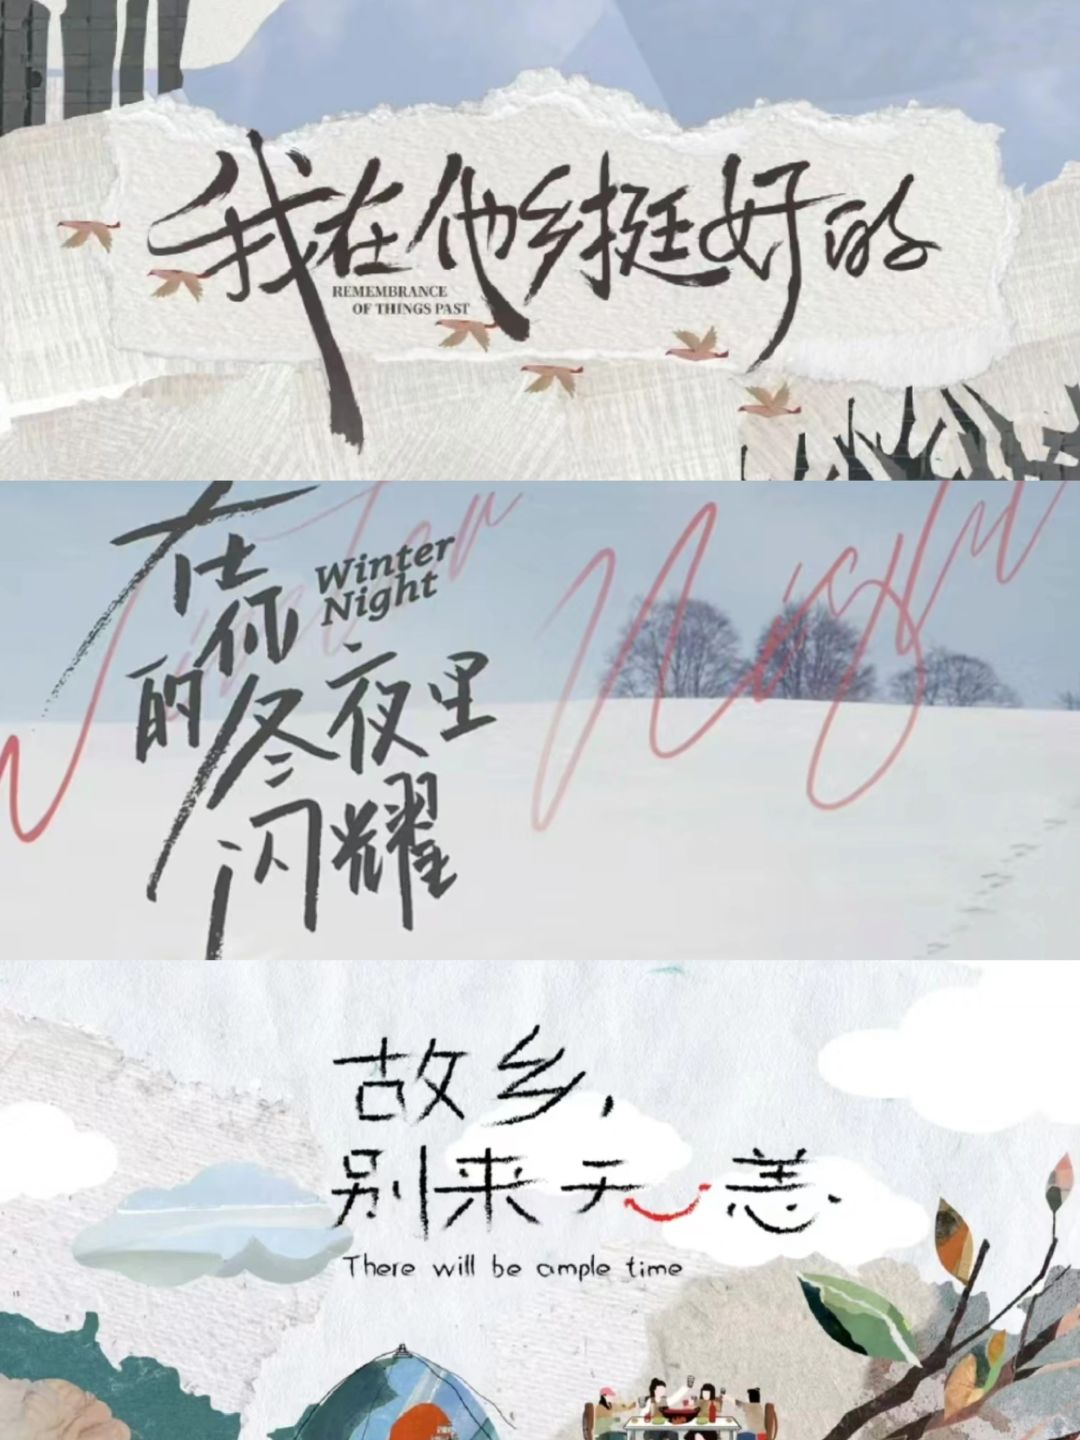 我在他乡挺好的
REMEMBRANCE
OF THINGS PAST
在你
Winter
Night
的冬夜里
闪耀
Night
故乡，
别来无恙.
There will be ample time